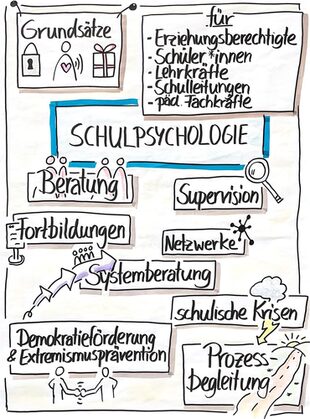 Grundsätze
für
- Erziehungsberechtigte
- Schüler*innen
- Lehrkräfte
- Schulleitungen
- päd. Fachkräfte
SCHULPSYCHOLOGIE
Beratung
Supervision
Fortbildungen
Netzwerke
Systemberatung
schulische Krisen
Demokratieförderung
& Extremismusprävention
Prozess
begleitung